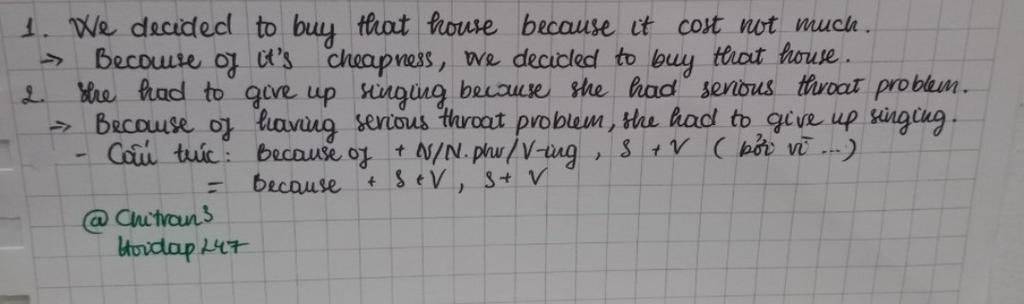 1. We decided to buy that house because it cost not much.
→ Because of it's cheapness, we decided to buy that house.
2. She had to give up singing because she had serious throat problem.
⇒ Because of having serious throat problem, she had to give up singing.
- Cấu trúc: Because of + N/N.phr/V-ing, S + V (bởi vì ...)
= because + S + V, S + V
@Chitran3
Hoidap247